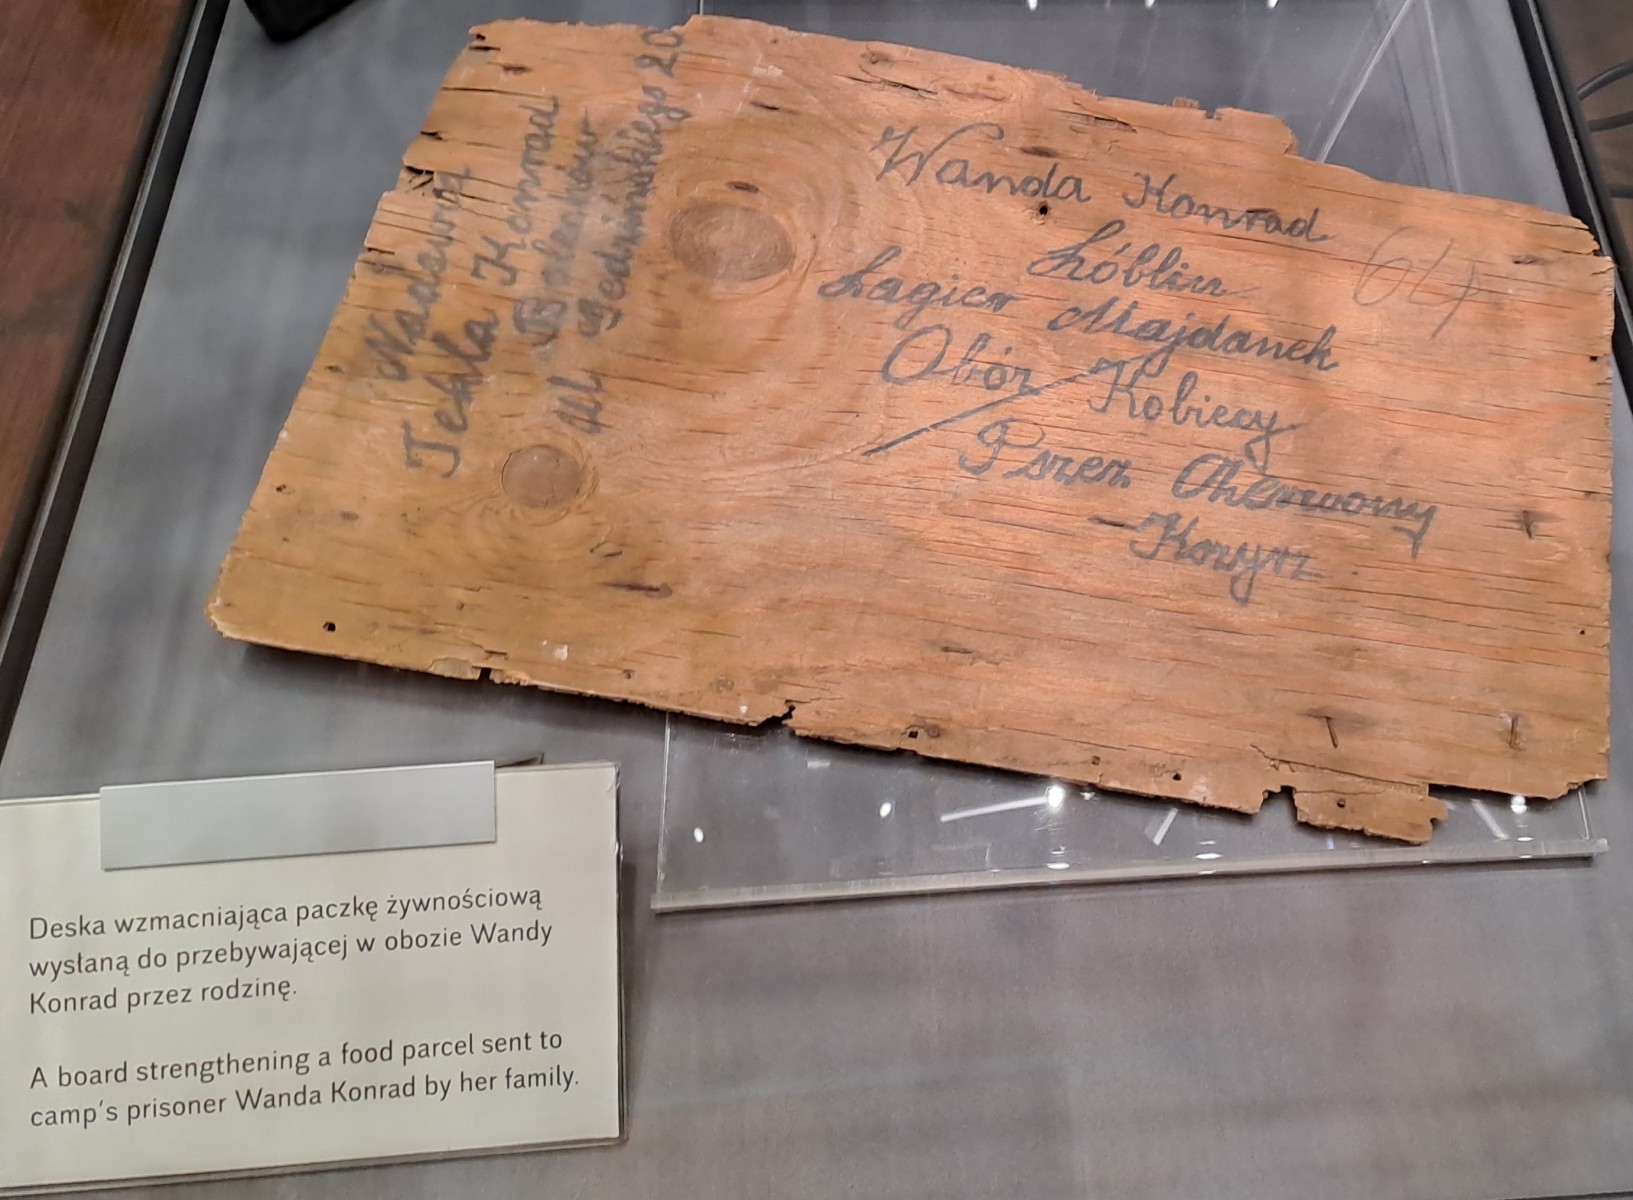 Nadawca
Tekla Konrad
Piotrków
Ul Jedzińskiego 20
Wanda Konrad
Lóblin
Łagier Majdanek
Obóz Kobiecy
Pszez Cherwony
Kozyrz
64
Deska wzmacniająca paczkę żywnościową
wysłaną do przebywającej w obozie Wandy
Konrad przez rodzinę.
A board strengthening a food parcel sent to
camp's prisoner Wanda Konrad by her family.